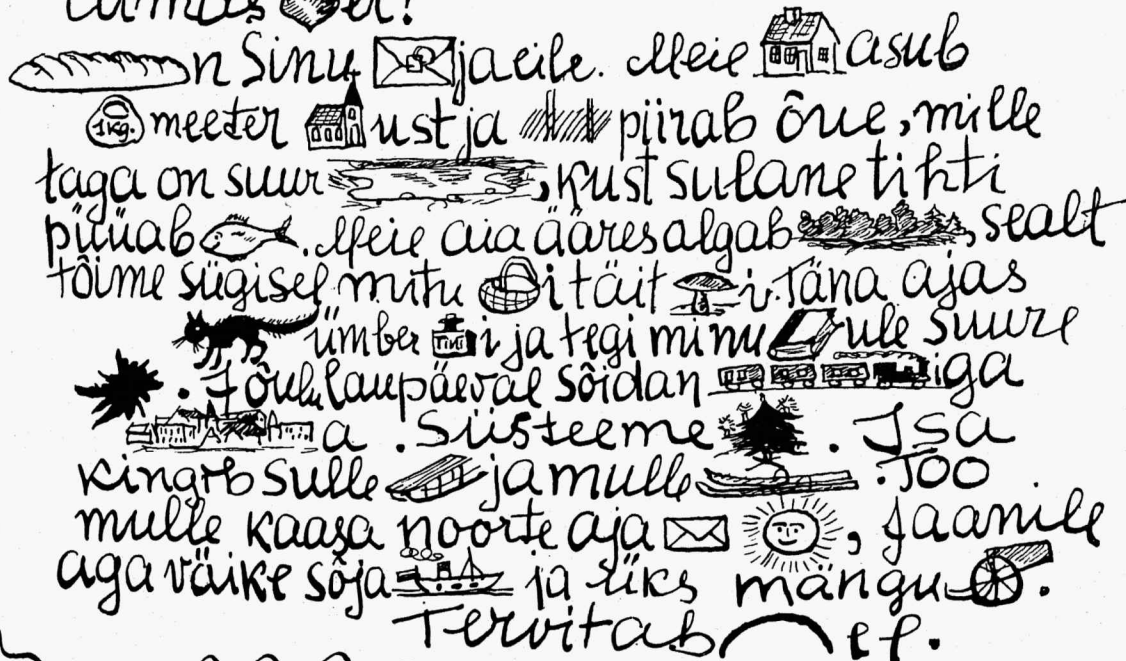 n Sinu ja eile. Meie asub
1 kg. meeter ust ja piirab õue, mille
taga on suur , kust sulane tihti
püüab . Meie aia ääres algab , sealt
tõime sügisel mitu i täit i. Täna ajas
ümber TINT i ja tegi minu ule suure
. Jõululaupäeval sõidan iga
a . Siis teeme . Isa
kingib sulle ja mulle . Too
mulle kaasa noorte aja , Jaanile
aga väike sõja ja üks mängu .
Tervitab